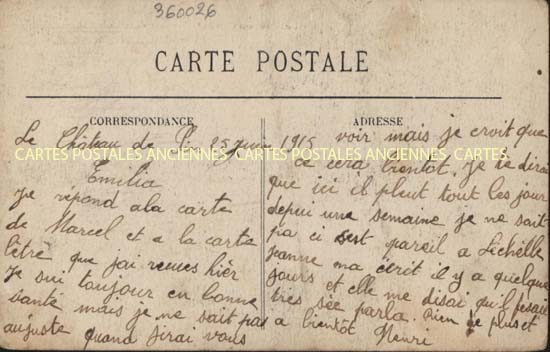 360026
CARTE POSTALE
CORRESPONDANCE
Le Château de St. 25 juin 1915
Emilia
je répond a la carte
de Marcel et a la carte
lètre que jai reçues hièr
Je sui toujour en bonne
santé mais je ne sait pas
au juste quand jirai vous
ADRESSE
voir mais je croit que
ce cera bientot. je te dirai
que ici il pleut tout les jour
depui une semaine je ne sait
pa ci sest pareil a Lechelle
jeanne ma écrit il y a quelque
jours et elle me disai qu'il fesait
tres sée parla. Rien de plus et
a bientôt Henri
CARTES POSTALES ANCIENNES CARTES POSTALES ANCIENNES CARTES